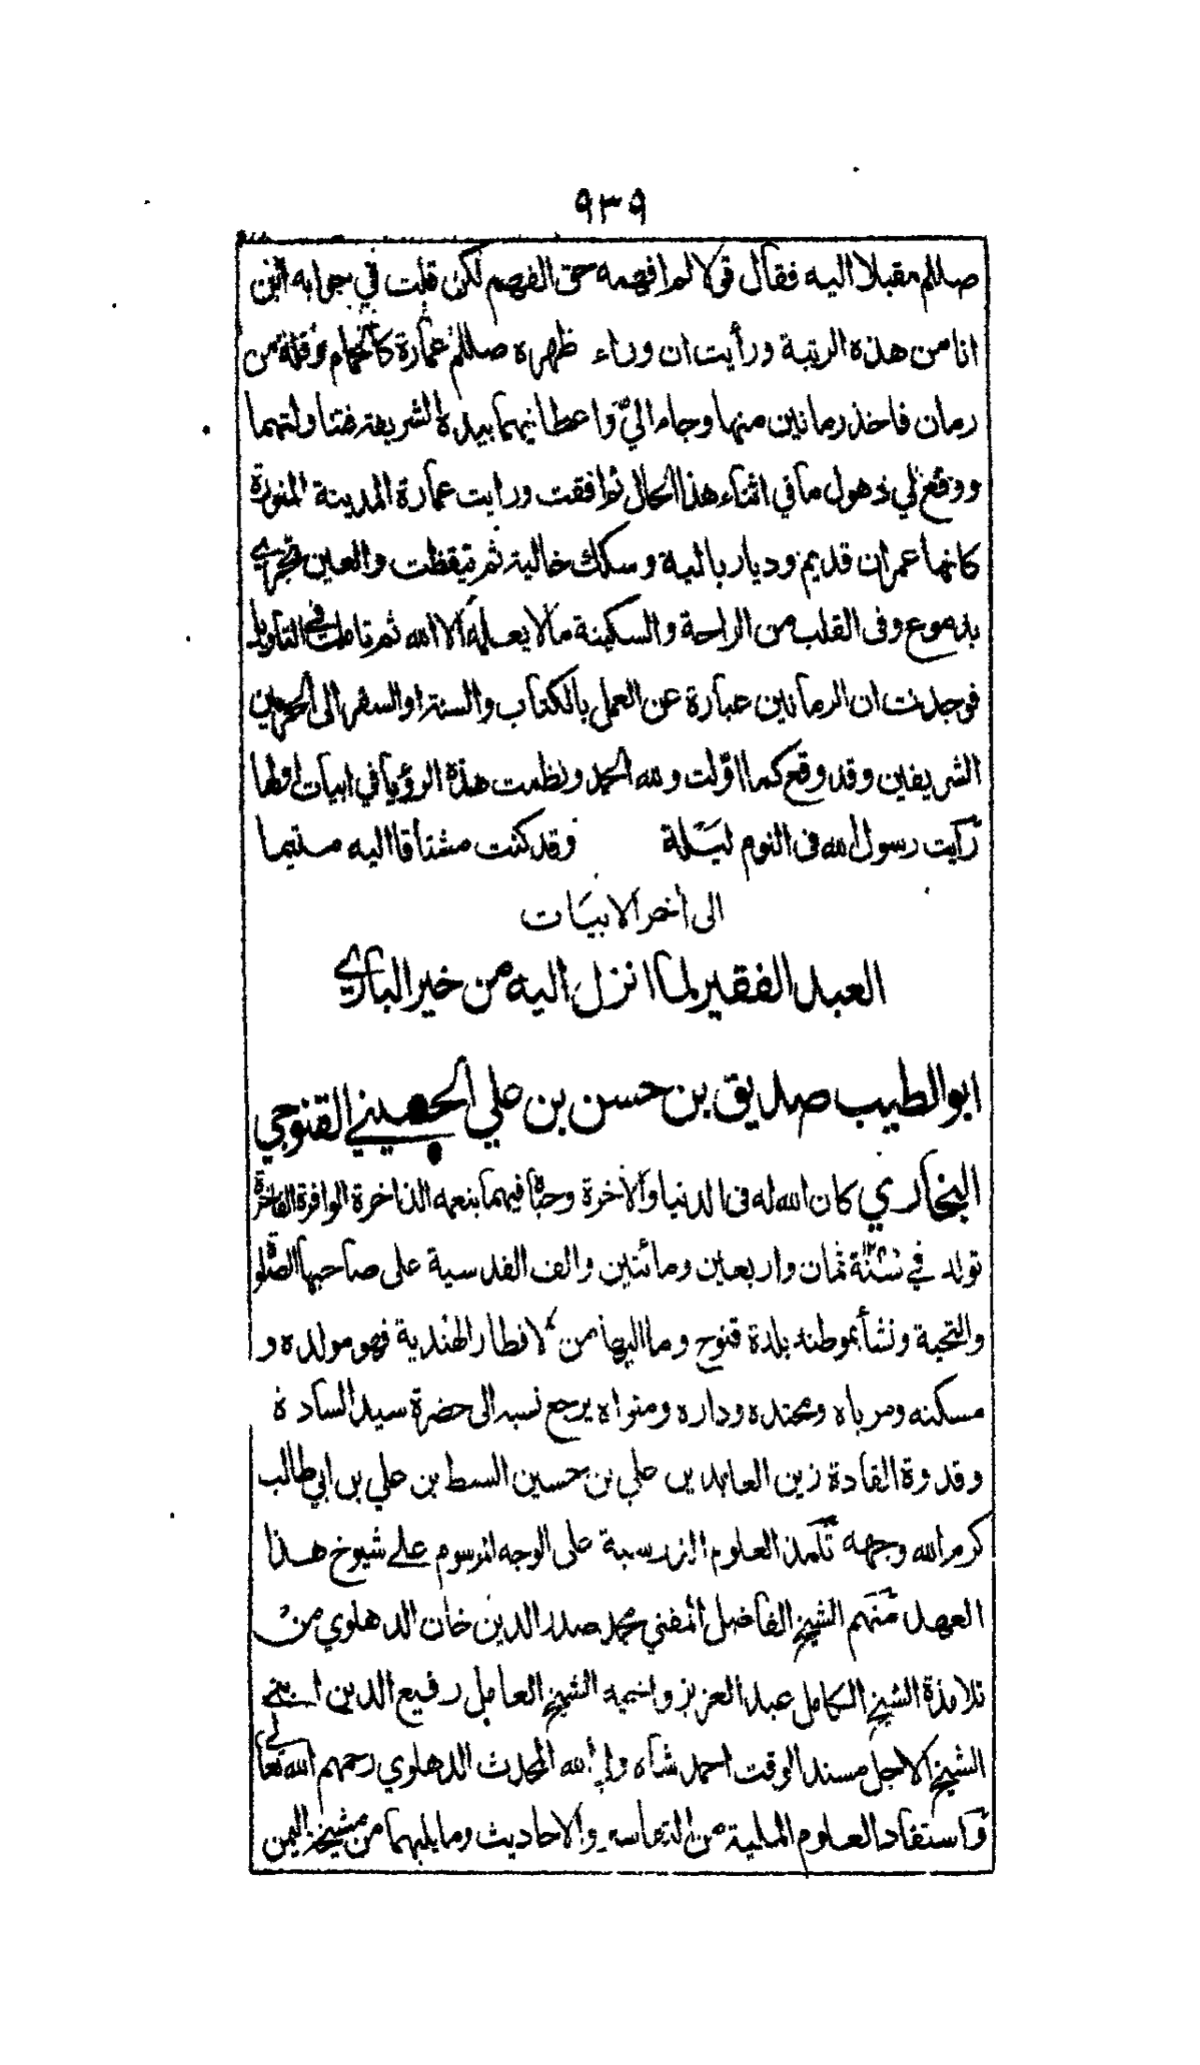 ٩٣٩
صللم مقبلا اليه فقال قولا لم افهمه حق الفهم لكن قلت في جوابه اين
انا من هذه الرتبة ورأيت ان وراء ظهره صللم عمارة كالحمام مرقلة من
رمان فاخذ رمانين منها وجاء اليّ واعطانيهما بيده الشريفة فتناولتهما
ووقع لي ذهول ما في اثناء هذا الحال ثم افقت ورايت عمارة المدينة المنورة
كانها عمران قديم وديار بالية وسكك خالية ثم تيقظت والعين تجري
بدموع وفى القلب من الراحة والسكينة ما لا يعلمه الا الله ثم تاملت في التاويل
فوجدت ان الرمانين عبارة عن العمل بالكتاب والسنة او السفر الى الحرمين
الشريفين وقد وقع كما اوّلت ولله الحمد ونظمت هذه الرؤيا في ابيات اولها
رَأيت رسول الله فى النوم ليَلة وقد كنت مشتاقا اليه متيما
الى أخر الابيات
العبد الفقير لما انزل اليه من خير الباري
ابو الطيب صديق بن حسن بن علي الحسيني القنوجي
البخاري كان الله له فى الدنيا والاخرة وحباه فيهما بنعمه الذاخرة الوافرة الفاخرة
تولد في سنة ثمان واربعين ومائتين والف القدسية على صاحبها الصّلوة
والتحية ونشأ بموطنه بلدة قنوج وما اليها من الاقطار الهندية فهو مولده و
مسكنه ومرباه ومحتده وداره ومثواه يرجع نسبه الى حضرة سيد السادة
وقدوة القادة زين العابدين علي بن حسين السبط بن علي بن ابي طالب
كرم الله وجهه تَلَمذ العلوم الدرسية على الوجه المرسوم على شيوخ هذا
العهد منَهم الشيخ الفاضل المفتي محمد صدر الدين خان الدهلوي من
تلامذة الشيخ الكامل عبد العزيز واخيه الشيخ العامل رفيع الدين ابني
الشيخ الاجل مسند الوقت احمد شاه ولي الله المحدث الدهلوي رحمهم الله تعالى
واستفاد العلوم الملية من التفاسير والاحاديث وما يليهما من مشيخة اليمن